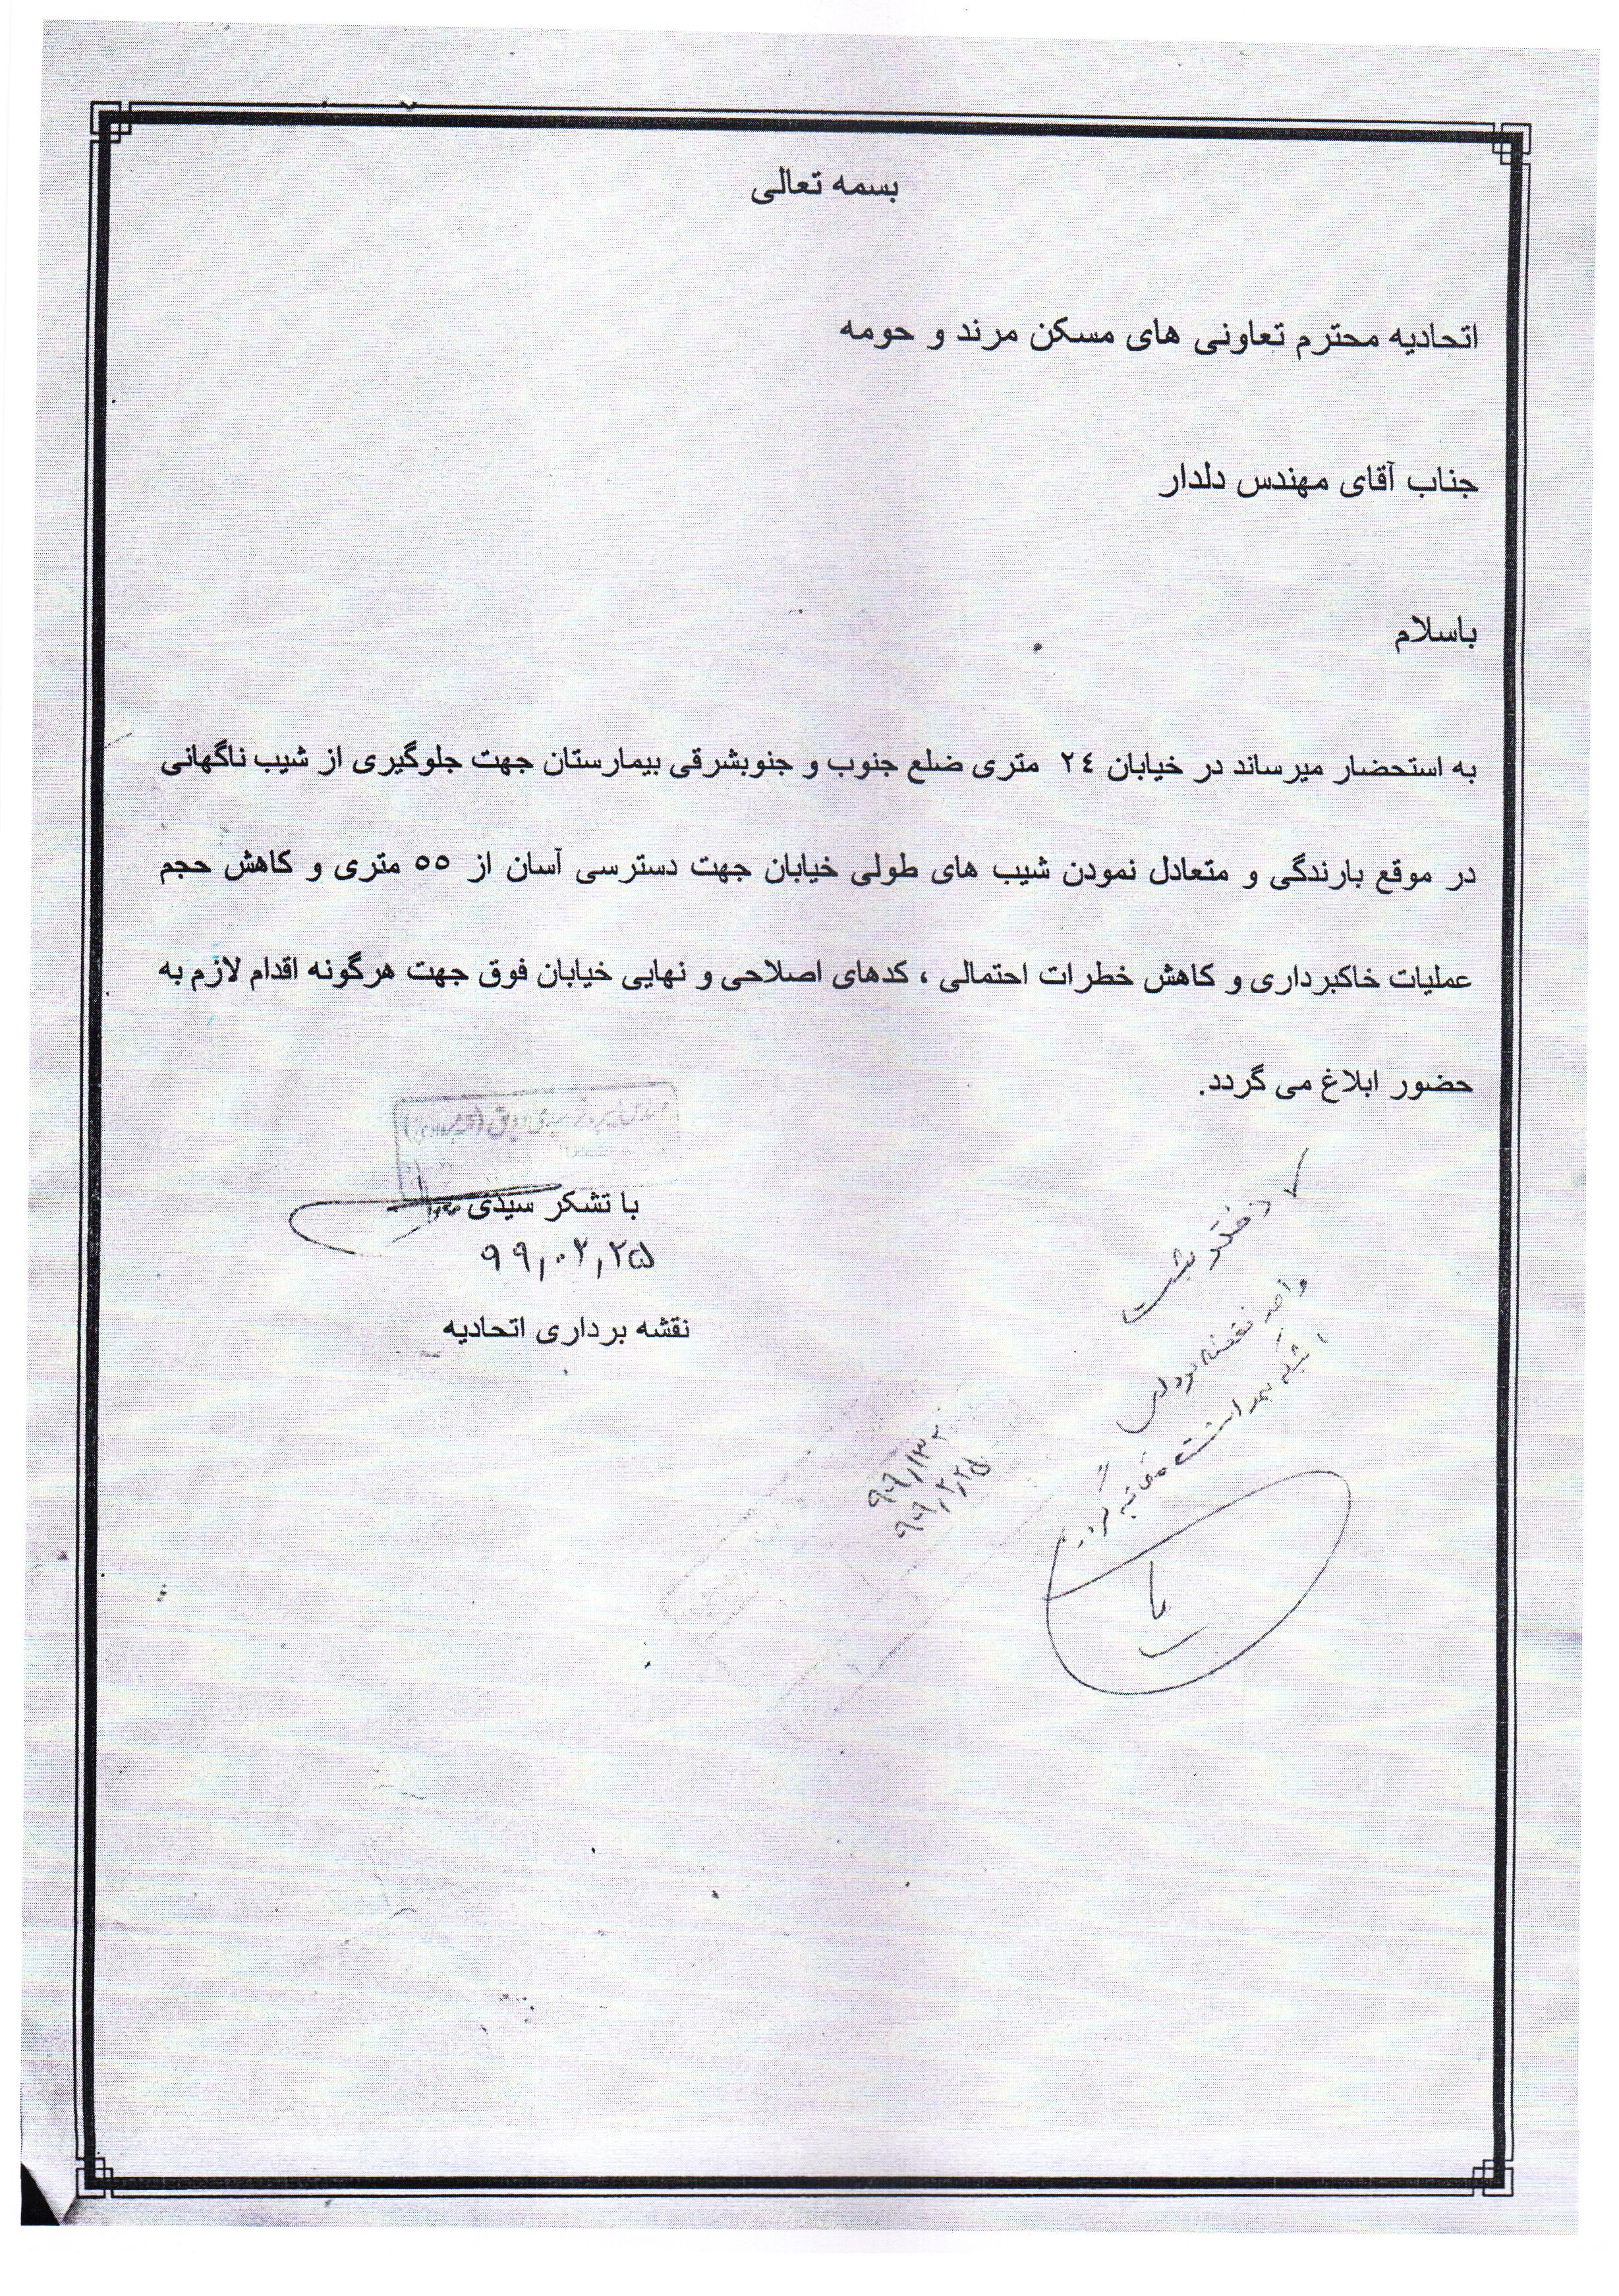 بسمه تعالی
اتحادیه محترم تعاونی های مسکن مرند و حومه
جناب آقای مهندس دلدار
باسلام
به استحضار میرساند در خیابان ٢٤ متری ضلع جنوب و جنوبشرقی بیمارستان جهت جلوگیری از شیب ناگهانی
در موقع بارندگی و متعادل نمودن شیب های طولی خیابان جهت دسترسی آسان از ٥٥ متری و کاهش حجم
عملیات خاکبرداری و کاهش خطرات احتمالی ، کدهای اصلاحی و نهایی خیابان فوق جهت هرگونه اقدام لازم به
حضور ابلاغ می گردد.
با تشکر سیدی
۹۹,۰۲,۲۵
نقشه برداری اتحادیه
واحد نقشه برداری
۹۹,۲,۲۵